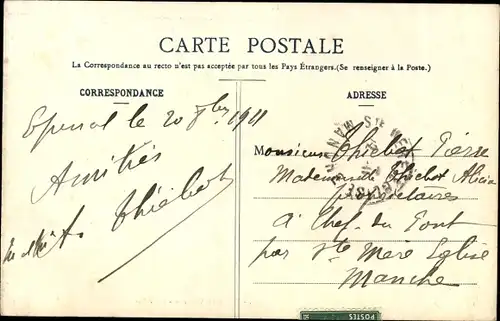 CARTE POSTALE
La Correspondance au recto n'est pas acceptée par tous les Pays Étrangers. (Se renseigner à la Poste.)
CORRESPONDANCE
Epinal le 20 9bre 1911
Amitiés
A. Thiébot
ADRESSE
Monsieur Thiebot Pierre
Mademoiselle Thiebot Alicia
propriétaires
à Chef du Pont
par Ste Mère Eglise
Manche
POSTES